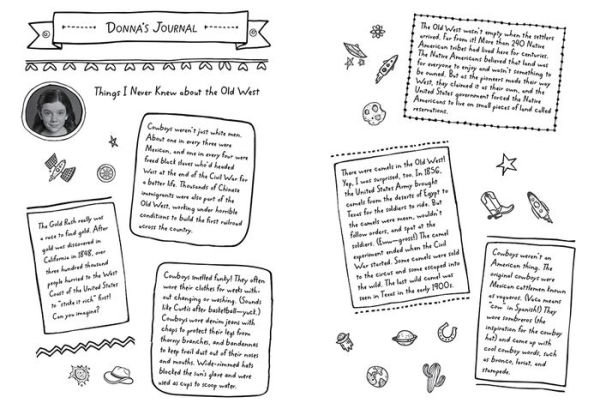 DONNA'S JOURNAL
Things I Never Knew about the Old West
Cowboys weren't just white men.
About one in every three were
Mexican, and one in every four were
freed black slaves who'd headed
West at the end of the Civil War for
a better life. Thousands of Chinese
immigrants were also part of the
Old West, working under horrible
conditions to build the first railroad
across the country.
The Gold Rush really was
a race to find gold. After
gold was discovered in
California in 1848, over
three hundred thousand
people hurried to the West
Coast of the United States
to "strike it rich" first!
Can you imagine?
Cowboys smelled funky! They often
wore their clothes for weeks with-
out changing or washing. (Sounds
like Curtis after basketball—yuck.)
Cowboys wore denim jeans with
chaps to protect their legs from
thorny branches, and bandannas
to keep trail dust out of their noses
and mouths. Wide-rimmed hats
blocked the sun's glare and were
used as cups to scoop water.
The Old West wasn't empty when the settlers
arrived. Far from it! More than 240 Native
American tribes had lived here for centuries.
The Native Americans believed that land was
for everyone to enjoy and wasn't something to
be owned. But as the pioneers made their way
West, they claimed it as their own, and the
United States government forced the Native
Americans to live on small pieces of land called
reservations.
There were camels in the Old West!
Yep, I was surprised, too. In 1856,
the United States Army brought
camels from the deserts of Egypt to
Texas for the soldiers to ride. But
the camels were mean, wouldn't
follow orders, and spat at the
soldiers. (Eww—gross!) The camel
experiment ended when the Civil
War started. Some camels were sold
to the circus and some escaped into
the wild. The last wild camel was
seen in Texas in the early 1900s.
Cowboys weren't an
American thing. The
original cowboys were
Mexican cattlemen known
as vaqueros. (Vaca means
"cow" in Spanish!) They
wore sombreros (the
inspiration for the cowboy
hat) and came up with
cool cowboy words, such
as bronco, lariat, and
stampede.